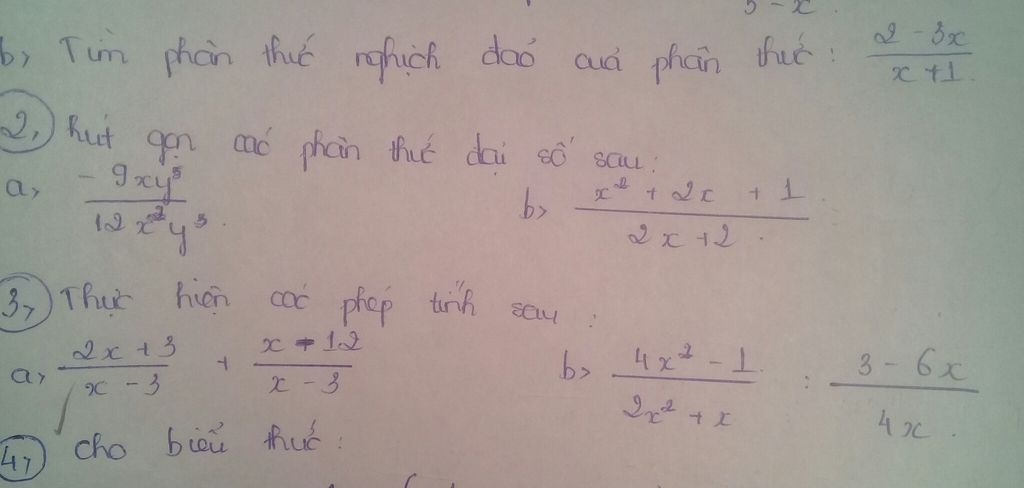 5 - x.
b, Tìm phân thức nghịch đaỏ cuả phân thức: (2 - 3x)/(x + 1).
2, Rút gọn các phân thức đại số sau:
a, (-9xy⁵)/(12x²y³). b> (x² + 2x + 1)/(2x + 2).
3, Thực hiện các phép tính sau:
a, (2x + 3)/(x - 3) + (x - 12)/(x - 3) b> (4x² - 1)/(2x² + x) : (3 - 6x)/(4x).
4, cho biểu thức: